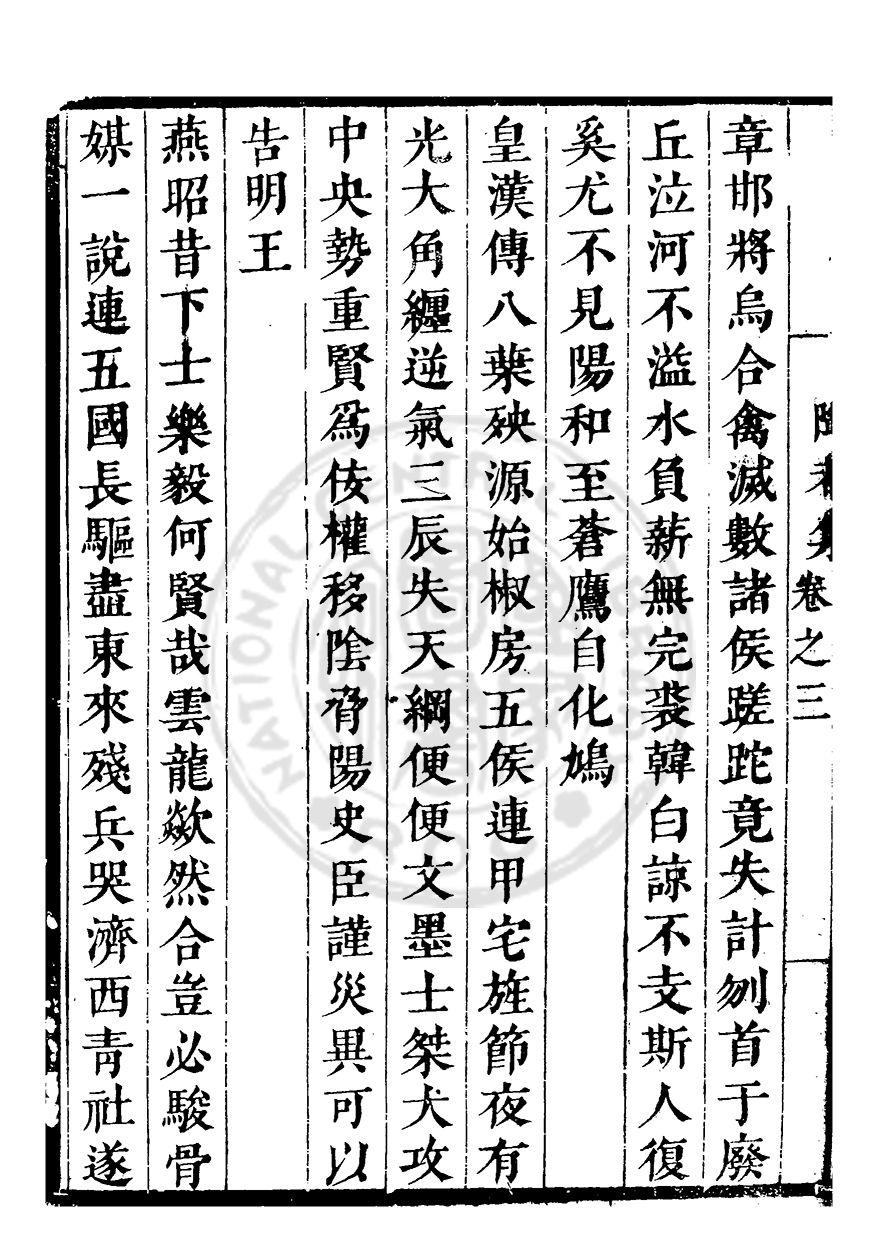 卷之三
章邯將烏合禽滅數諸侯蹉跎竟失計刎首于廢
丘泣河不溢水負薪無完裘韓白諒不支斯人復
奚尤不見陽和至蒼鷹自化鳩
皇漢傳八葉殃源始椒房五侯連甲宅旌節夜有
光大角纏逆氣三辰失天綱便便文墨士桀犬攻
中央勢重賢爲佞權移陰脅陽史臣謹災異可以
告明王
燕昭昔下士樂毅何賢哉雲龍歘然合豈必駿骨
媒一說連五國長驅盡東來殘兵哭濟西靑社遂
NATIONAL CENTRAL LIBRARY